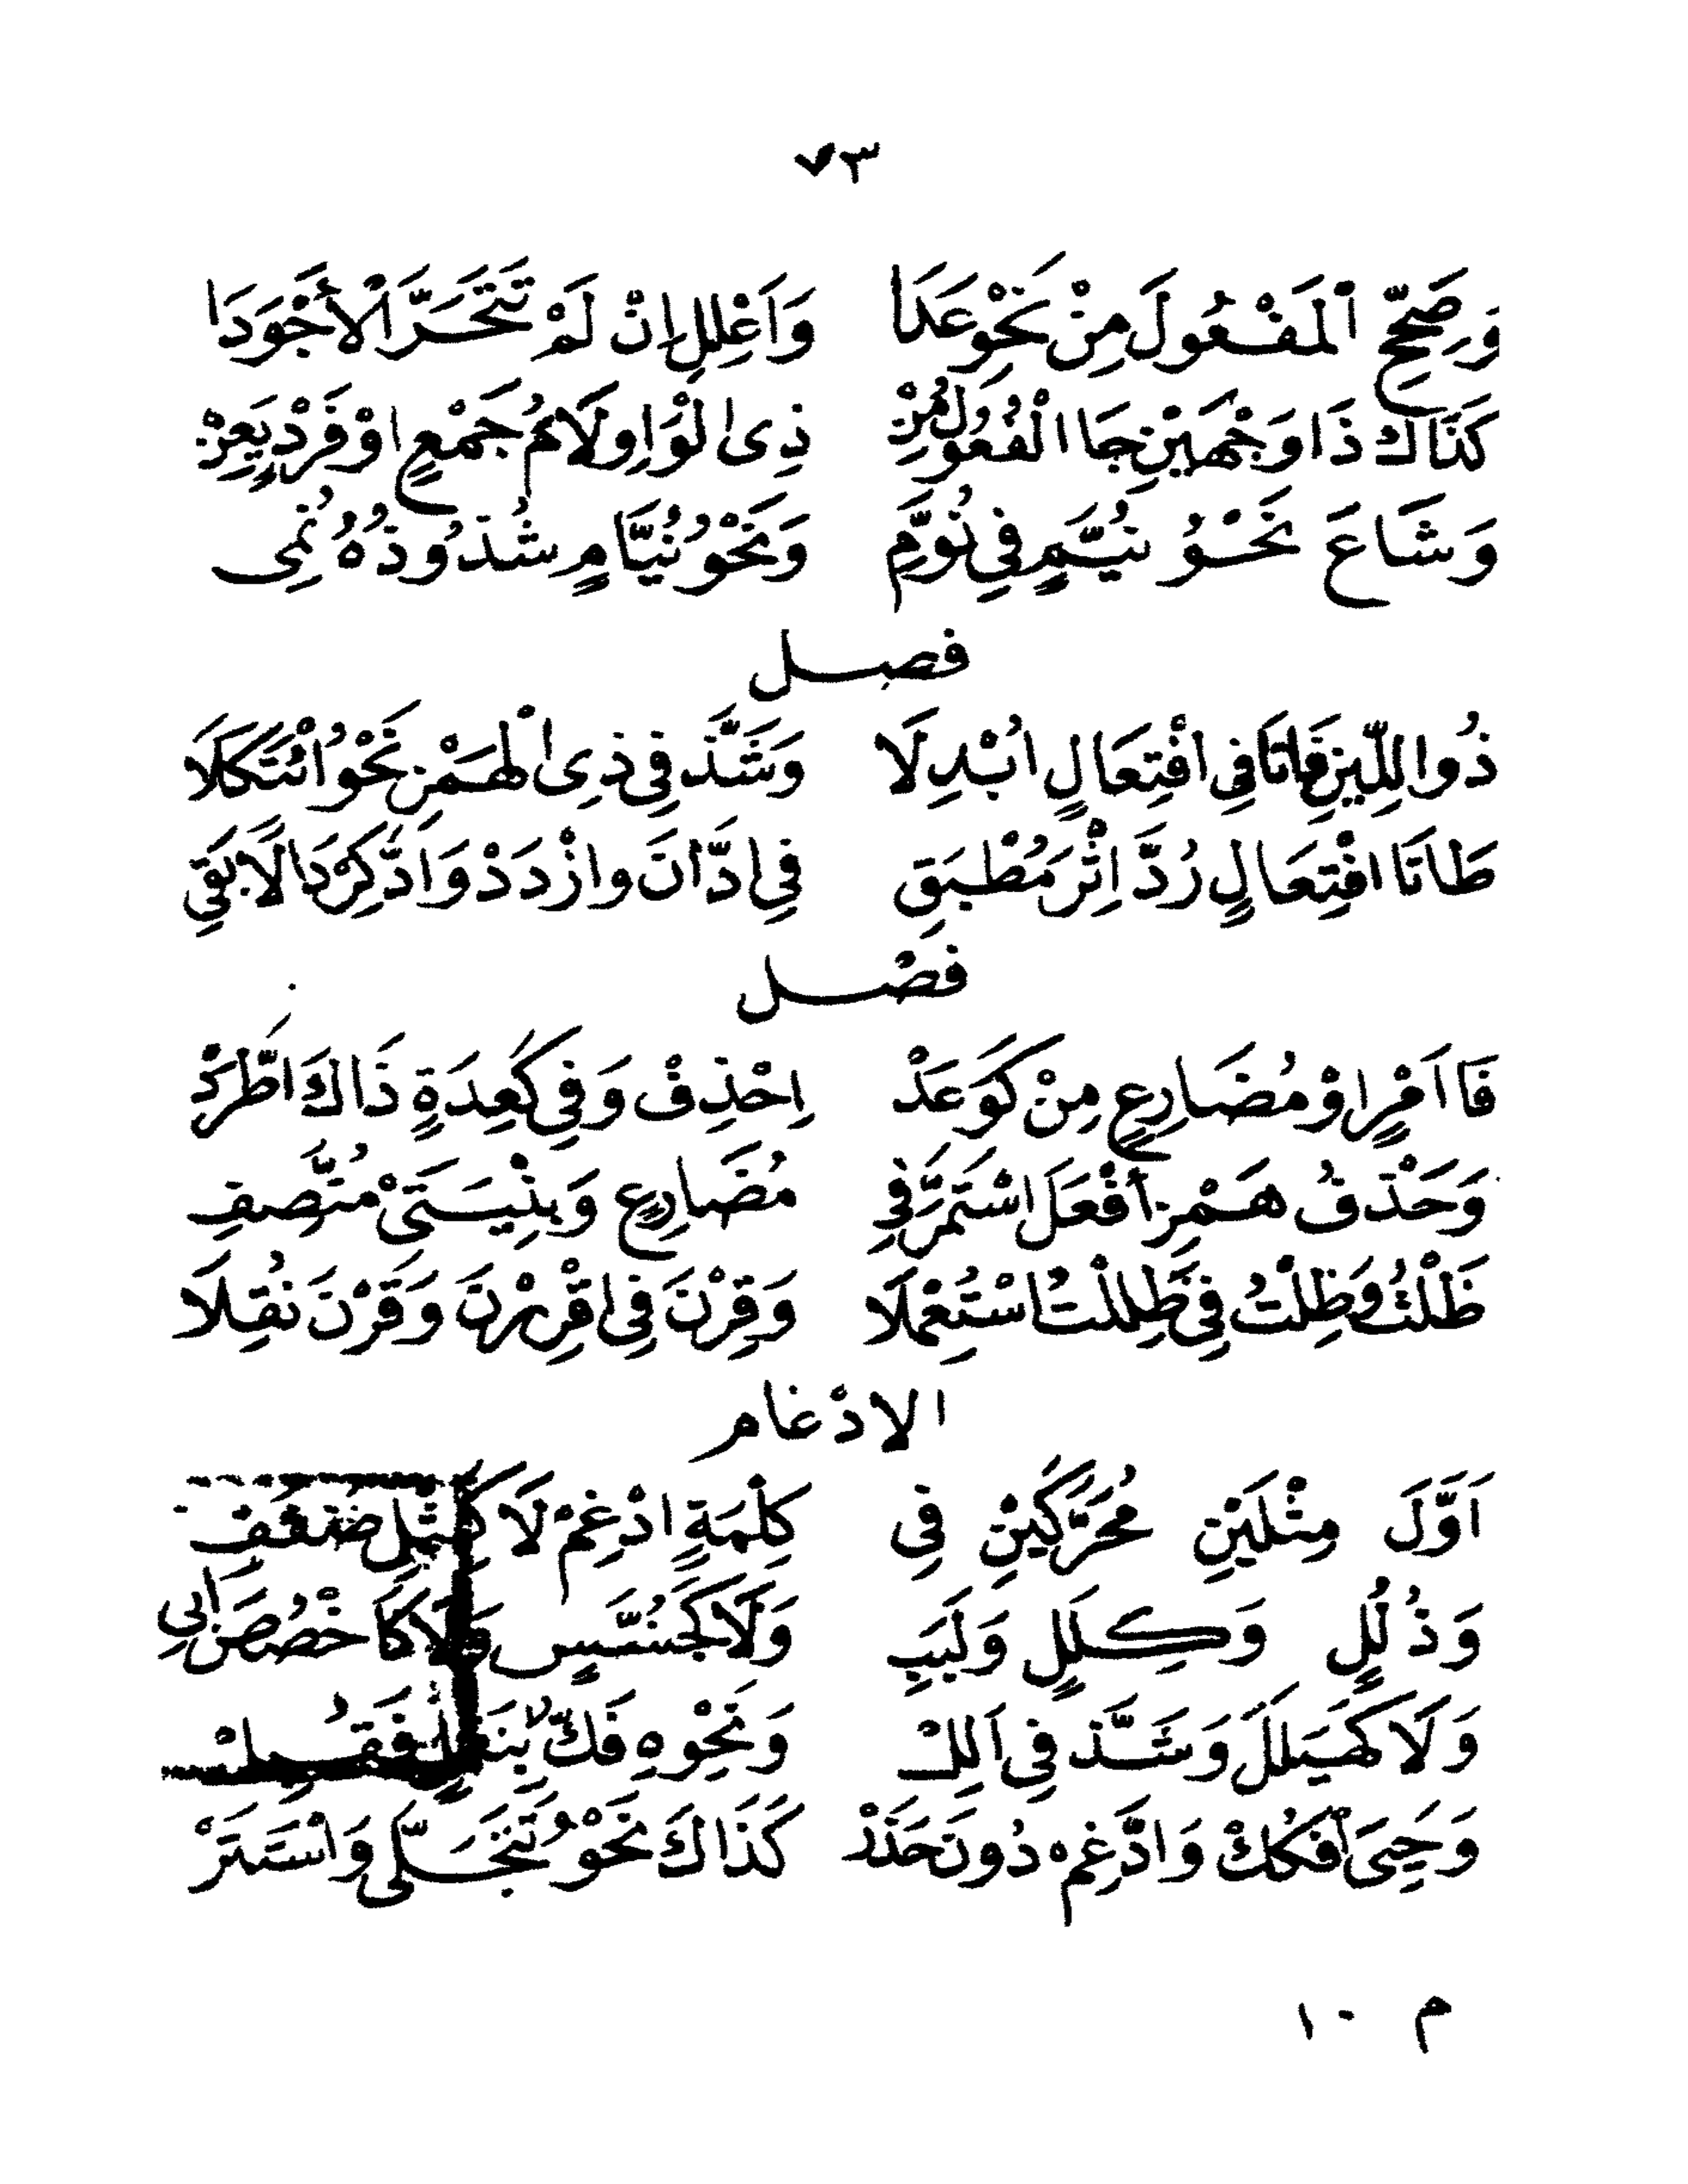 ٧٣
وَصَحِّحِ ٱلْمَفْعُولَ مِنْ نَحْوِ عَدَا وَاَعْلِلِ اِنْ لَمْ تَتَحَرَّ الْأَجْوَدَا
كَذَاكَ ذَا وَجْهَيْنِ جَا الْفُعُولُ مِنْ ذِى الْوَاوِ لَامُ جَمْعٍ اوْ فَرْدٍ يَعِنْ
وَشَاعَ نَحْوُ نُيَّمٍ فِي نُوَّمِ وَنَحْوُ نُيَّامٍ شُذُوذُهُ نُمِى
فصل
ذُو اللِّينِ فَاتَا فِي افْتِعَالٍ اُبْدِلَا وَشَذَّ فِي ذِى الْهَمْزِ نَحْوُ ائْتَكَلَا
طَاتَا افْتِعَالٍ رُدَّ اِثْرَ مُطْبَقِ فِي ادَّانَ وازْدَدْ وَادَّكِرْ دَالًا بَقِي
فصْل
فَا اَمْرٍ اوْ مُضَارِعٍ مِنْ كَوَعَدْ اِحْذِفْ وَفِي كَعِدَةٍ ذَاكَ اطَّرَدْ
وَحَذْفُ هَمْزِ أَفْعَلَ اسْتَمَرَّ فِي مُضَارِعٍ وَبِنْيَتَىْ مُتَّصِفِ
ظَلْتُ وَظِلْتُ فِي ظَلِلْتُ اسْتُعْمِلَا وَقِرْنَ فِي اقْرِرْنَ وَقَرْنَ نُقِلَا
الادْغام
اَوَّلَ مِثْلَيْنِ مُحَرَّكَيْنِ فِي كِلْمَةٍ ادْغِمْ لَا كَمِثْلِ صُفَفِ
وَذُلُلٍ وَكِلَلٍ وَلَبَبِ وَلَا كَجُسَّسٍ وَلَا كَاخْصُصَ ابِي
وَلَا كَهَيْلَلَ وَشَذَّ فِي اَلِلْ وَنَحْوِهِ فَكٌّ بِنَقْلٍ فَقُبِلْ
وَحَيِىَ أفْكُكْ وَادَّغِمْ دُونَ حَذَرْ كَذَاكَ نَحْوُ تَتَجَلَّى وَاسْتَتَرْ
م ١٠